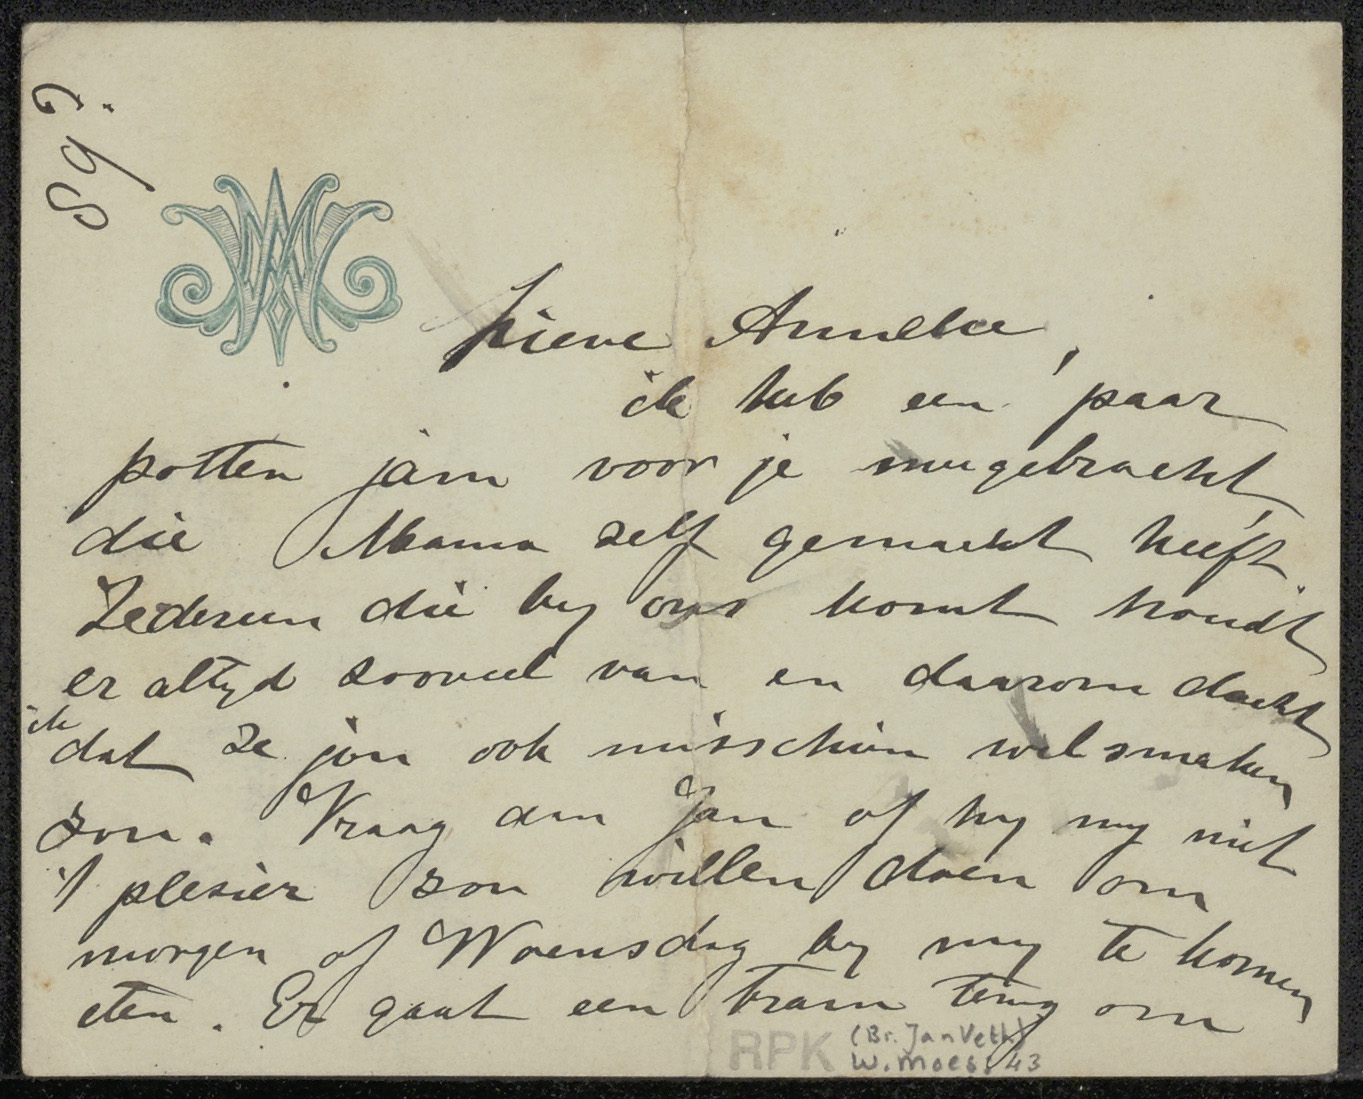 Lieve Anneke,
ik heb een paar
potten jam voor je meegebracht,
die Mama zelf gemaakt heeft.
Iedereen die by ons komt houdt
er altyd zooveel van en daarom dacht
ik
dat ze jou ook misschien wel smaken
zou. Vraag dan Jan of hy my niet
't plesier zou willen doen om
morgen of Woensdag by my te komen
eten. Er gaat een tram terug om
RPK (Br. Jan Veth)
W. Moes: 43